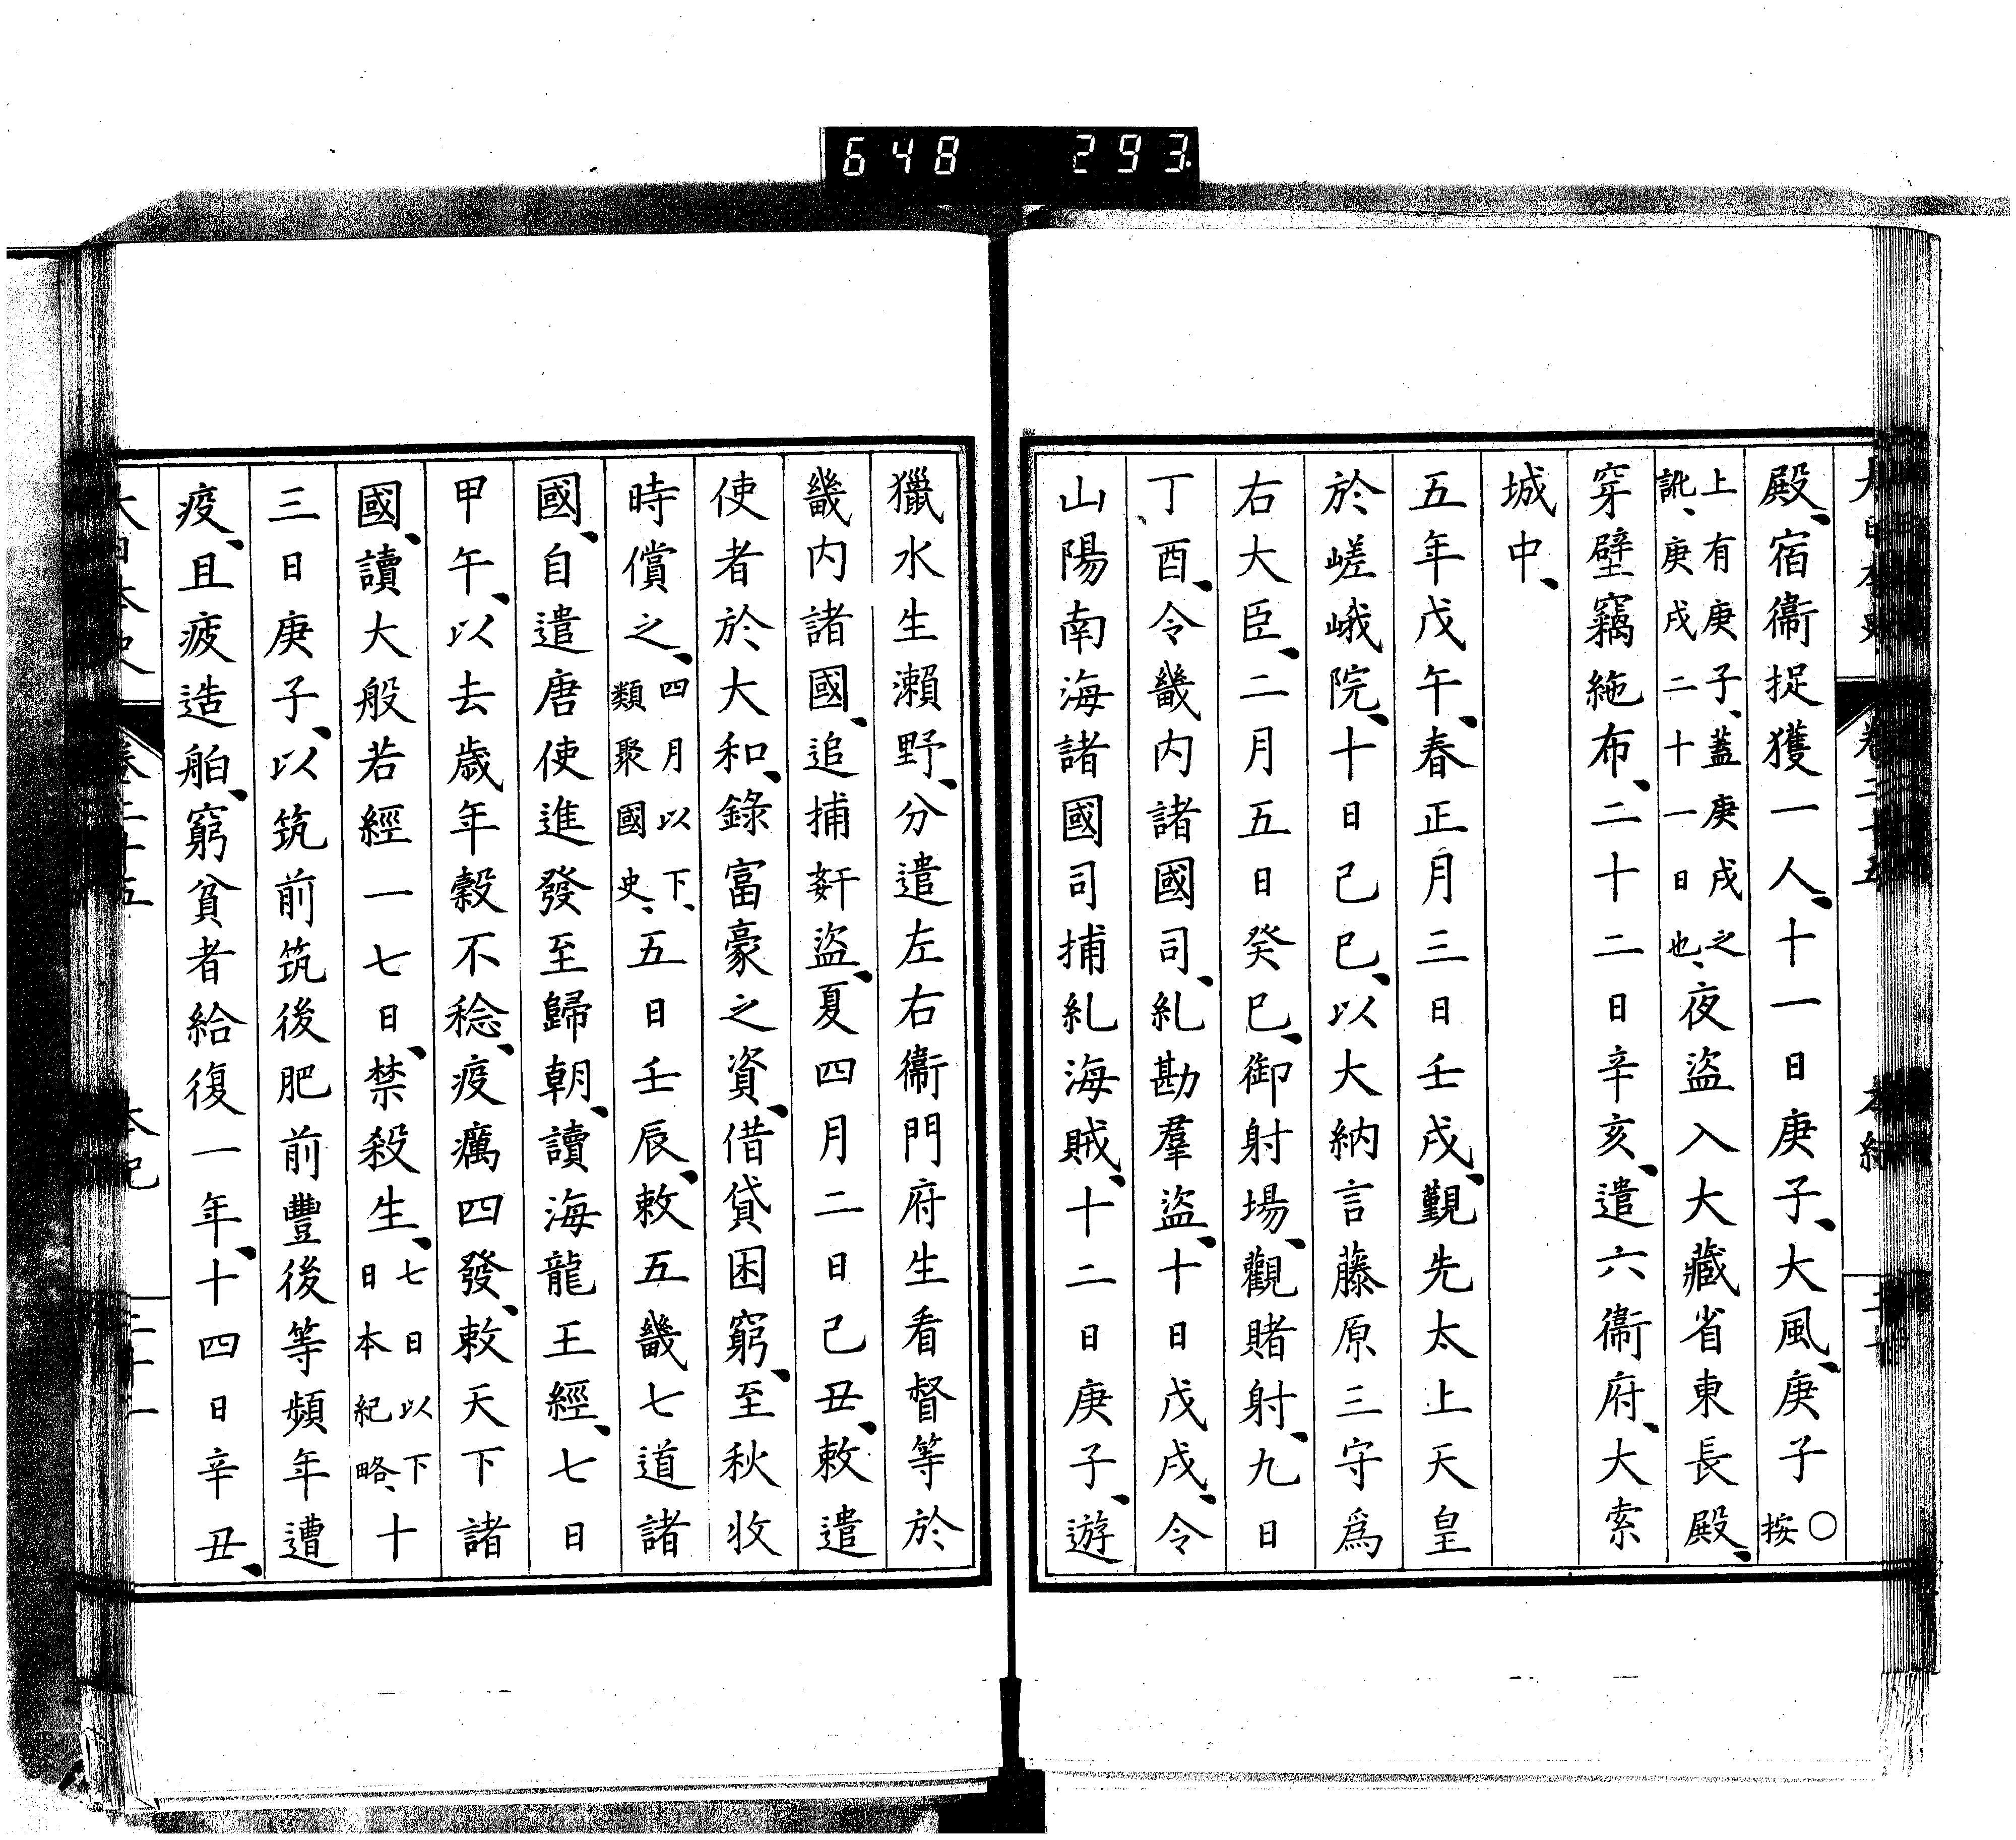 648 293
大日本史 卷二十五 本紀
殿、宿衞捉獲一人、十一日庚子、大風、庚子○按
上有庚子、蓋庚戌之訛、庚戌二十一日也、夜盜入大藏省東長殿、
穿壁竊絁布、二十二日辛亥、遣六衞府、大索
城中、
五年戊午、春正月三日壬戌、覲先太上天皇
於嵯峨院、十日己巳、以大納言藤原三守爲
右大臣、二月五日癸巳、御射場、觀賭射、九日
丁酉、令畿内諸國司、糺勘羣盜、十日戊戌、令
山陽南海諸國司捕糺海賊、十二日庚子、遊
獵水生瀨野、分遣左右衞門府生看督等於
畿内諸國、追捕奸盜、夏四月二日己丑、敕遣
使者於大和、錄富豪之資、借貸困窮、至秋收
時償之、四月以下、類聚國史、五日壬辰、敕五畿七道諸
國、自遣唐使進發至歸朝、讀海龍王經、七日
甲午、以去歲年穀不稔、疫癘四發、敕天下諸
國、讀大般若經一七日、禁殺生、七日以下日本紀略、十
三日庚子、以筑前筑後肥前豐後等頻年遭
疫、且疲造舶、窮貧者給復一年、十四日辛丑、
大日本史 卷二十五 本紀 二十一